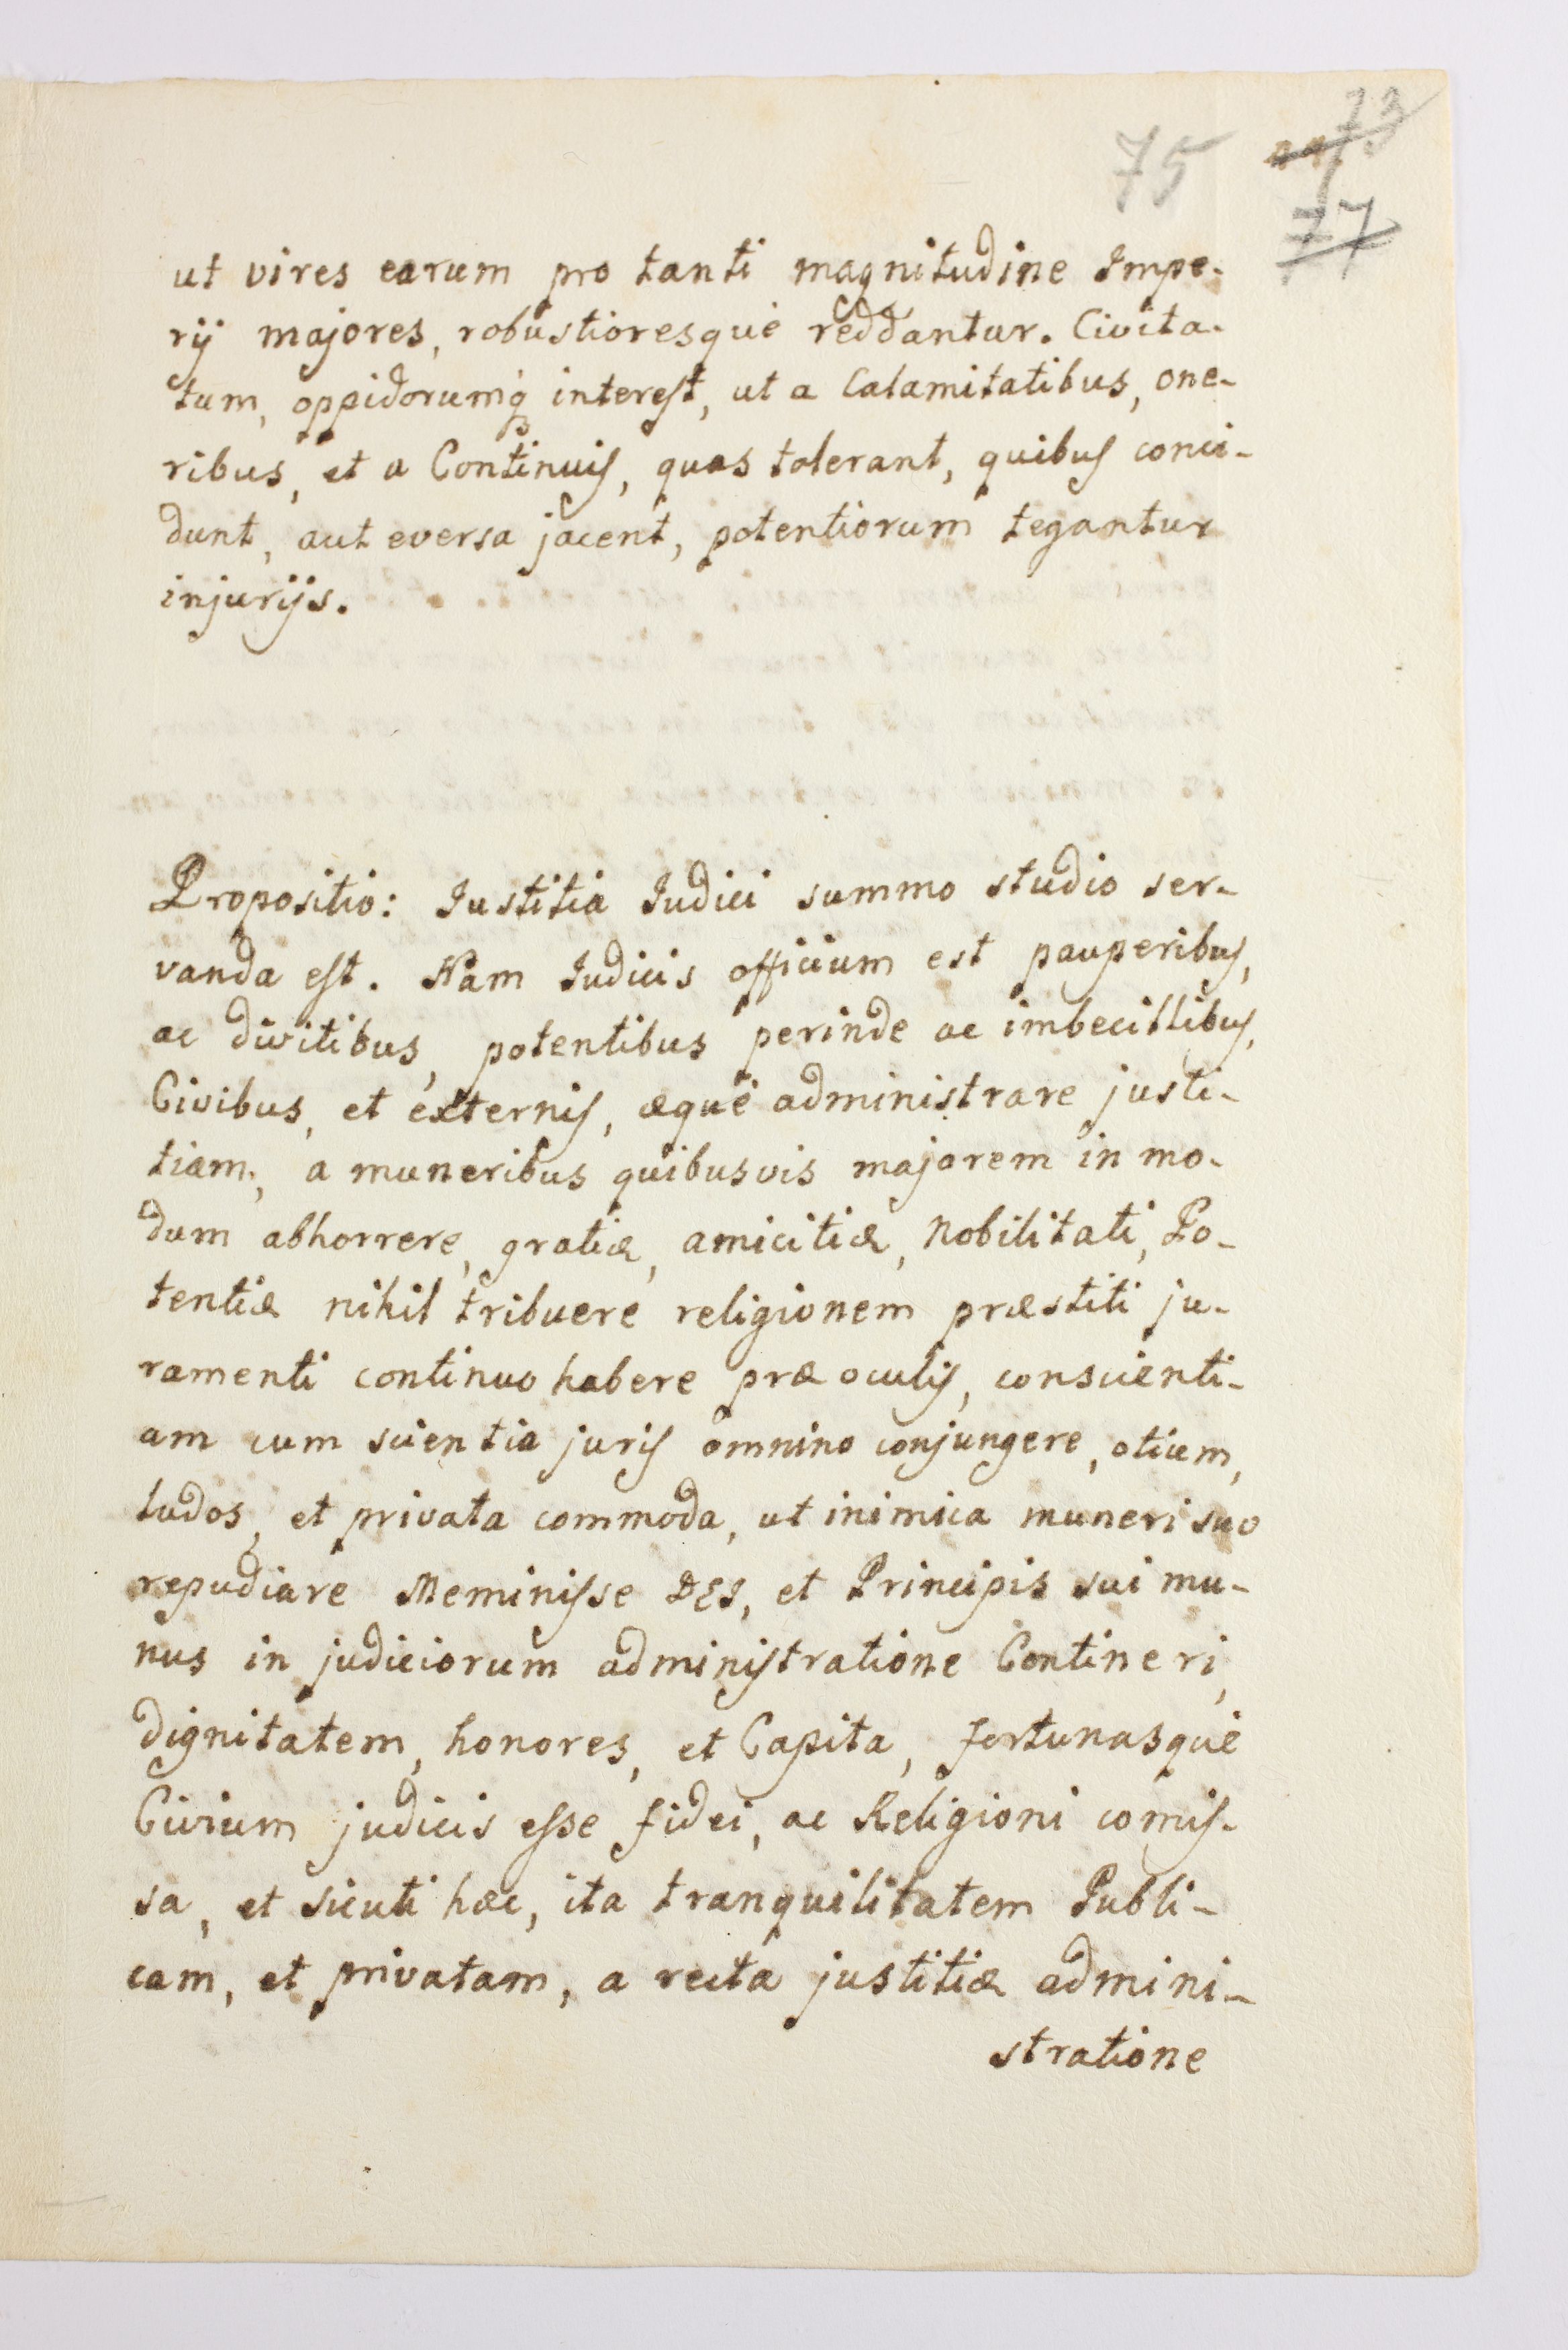 75
73
77
ut vires earum pro tanti magnitudine Impe-
rij majores, robustioresque reddantur. Civita-
tum, oppidorumq́ interest, ut a Calamitatibus, one-
ribus, et a Continuis, quas tolerant, quibus conci-
dunt, aut eversa jacent, potentiorum tegantur
injurijs.
Propositio: Iustitia Iudici summo studio ser-
vanda est. Nam Iudicis officium est pauperibus,
ac divitibus, potentibus perinde ac imbecillibus,
Civibus, et externis, æque administrare justi-
tiam, a muneribus quibusvis majorem in mo-
dum abhorrere, gratiæ, amicitiæ, Nobilitati, Po-
tentiæ nihil tribuere religionem præstiti ju-
ramenti continuo habere præ oculis, conscienti-
am cum scientia juris omnino conjungere, otium,
ludos, et privata commoda, ut inimica muneri suo
repudiare Meminisse DEI, et Principis sui mu-
nus in judiciorum administratione Contineri,
dignitatem, honores, et Capita, fortunasque
Civium judicis esse fidei, ac Religioni comis-
sa, et sicuti hæc, ita tranquilitatem Publi-
cam, et privatam, a recta justitiæ admini-
stratione